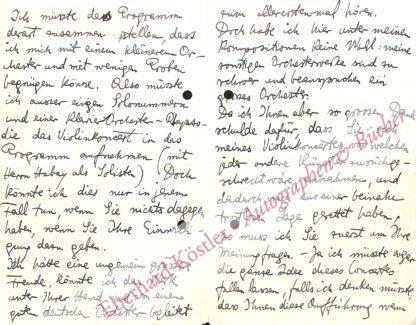 Ich müsste das Programm
derart zusammen stellen, dass
ich mich mit einem kleineren Or-
chester und mit wenigen Proben
begnügen könne. Also müsste
ich ausser einigen Solonummern
und einer Klavier-Orchester-Rhapso-
die das Violinkonzert in das
Programm aufnehmen (mit
Herrn Hubay als Solisten) Doch
könnte ich dies nur in jenem
Fall tun, wenn Sie nichts dagegen
haben, wenn Sie Ihre Einwilli-
gung dazu geben.
Ich hätte eine ungemein grosse
Freude, könnte ich das
unter Ihrer von einem
guten begleitet
zum allererstenmal hören.
Doch habe ich hier unter meinen
Kompositionen keine Wahl: meine
sonstigen Orchesterwerke sind zu
schwer und beanspruchen ein
grosses Orchester.
Da ich Ihnen aber so grossen Dank
schulde dafür, dass Sie
meines Violinkonzertes welcher
jeder andere Künstler zurückge-
schreckt wäre annahmen, und
dadurch aus einer beinahe
Lage gerettet haben,
so muss ich Sie zuerst um Ihre
Meinung fragen. - Ja ich müsste sogar
die ganze Idee dieses Concertes
fallen lassen, falls ich denken müsste
dass Ihnen diese Aufführung wenn
Eberhard Köstler - Autographen & Bücher